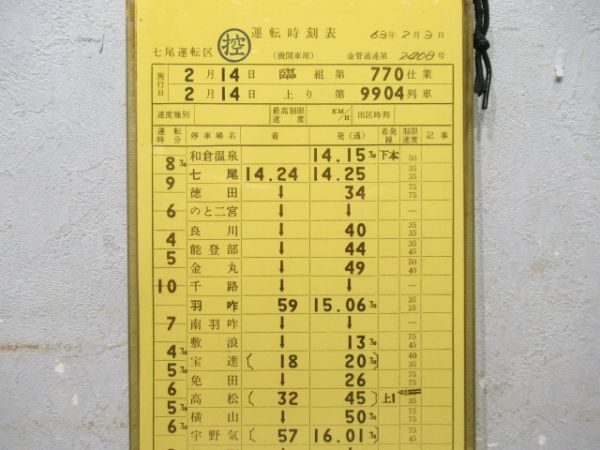 七尾運転区 控 運転時刻表 63年2月3日
(機関車用) 金管通達第2408号
施行日 2月14日 臨 組第 770仕業
2月14日 上り 第 9904列車
速度種別 最高制限速度 KM/H 出区時刻
運転時分 停車場名 着 発(通) 着発線 制限速度 記事
和倉温泉 14.15 30 下本 50
8 30
七尾 14.24 14.25 35 35
9
徳田 ↓ 34 75 75
のと二宮 ↓ ↓ —
6
良川 ↓ 40 35 35
4
能登部 ↓ 44 35 45
5
金丸 ↓ 49 50 40
千路 ↓ ↓ —
10
羽咋 59 15.06 30 35 35
南羽咋 ↓ ↓ —
7
敷浪 ↓ 13 30 75 45
4 30
宝達 ( 18 20 30 ) 40 35
5 30
免田 ↓ 26 75 75
6
高松 ( 32 45 ) 上1 35
5 30
横山 ↓ 50 30 75 45
6 30
宇野気 ( 57 16.01 30 )